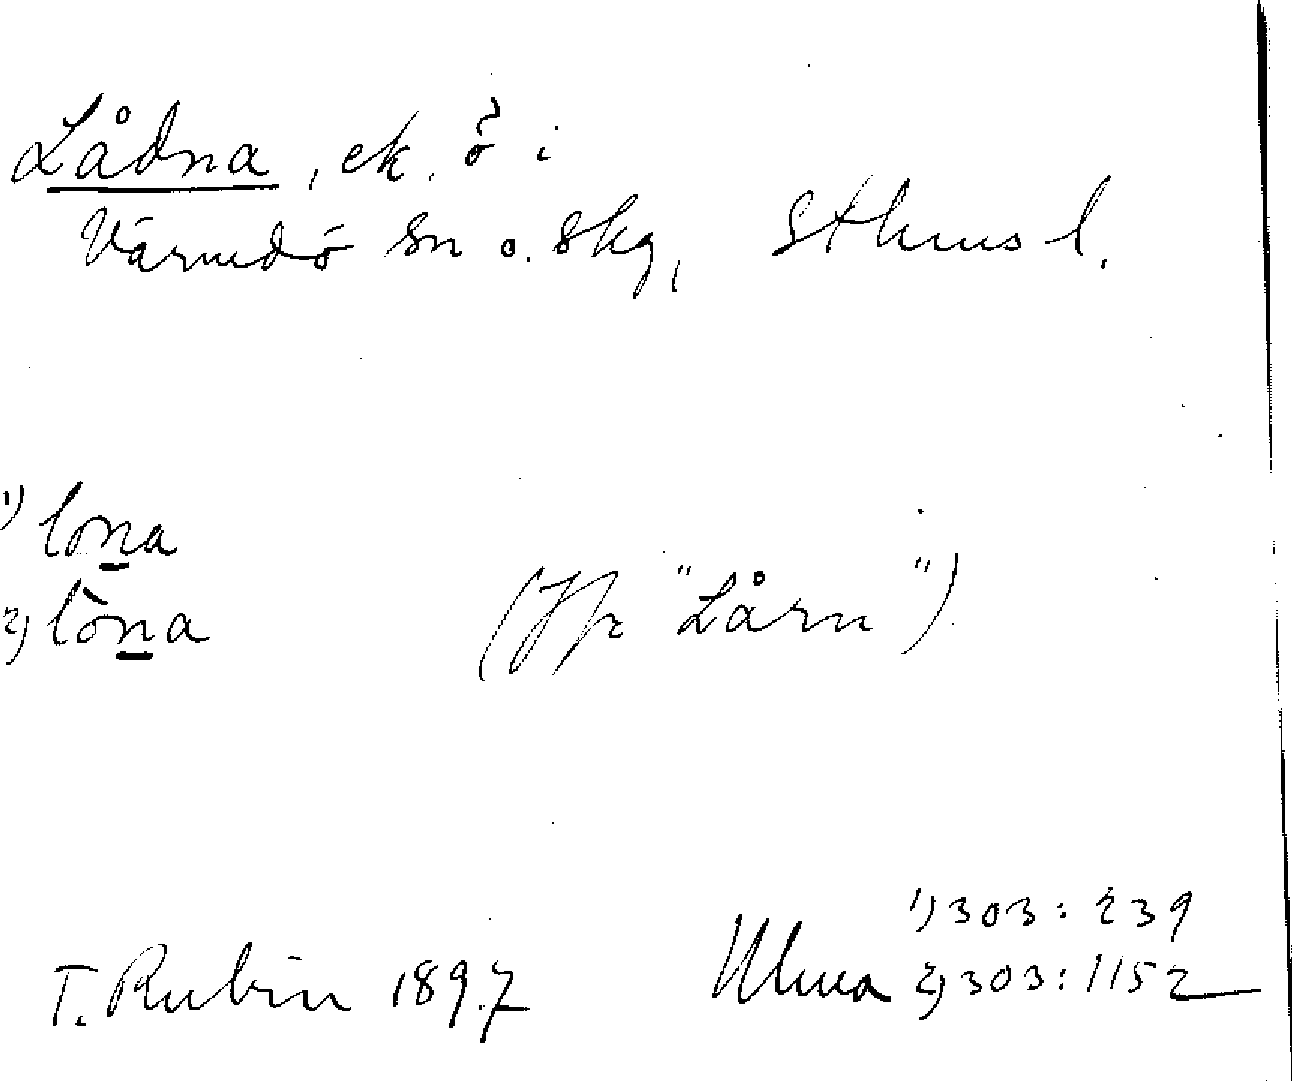 Lådna, ek. ö i
Värmdö sn o. skg, Sthms l.
1) lona
2) lòna (Jfr "Lårn")
1) 303:239
T. Rubin 1897 Ulma 2) 303:1152